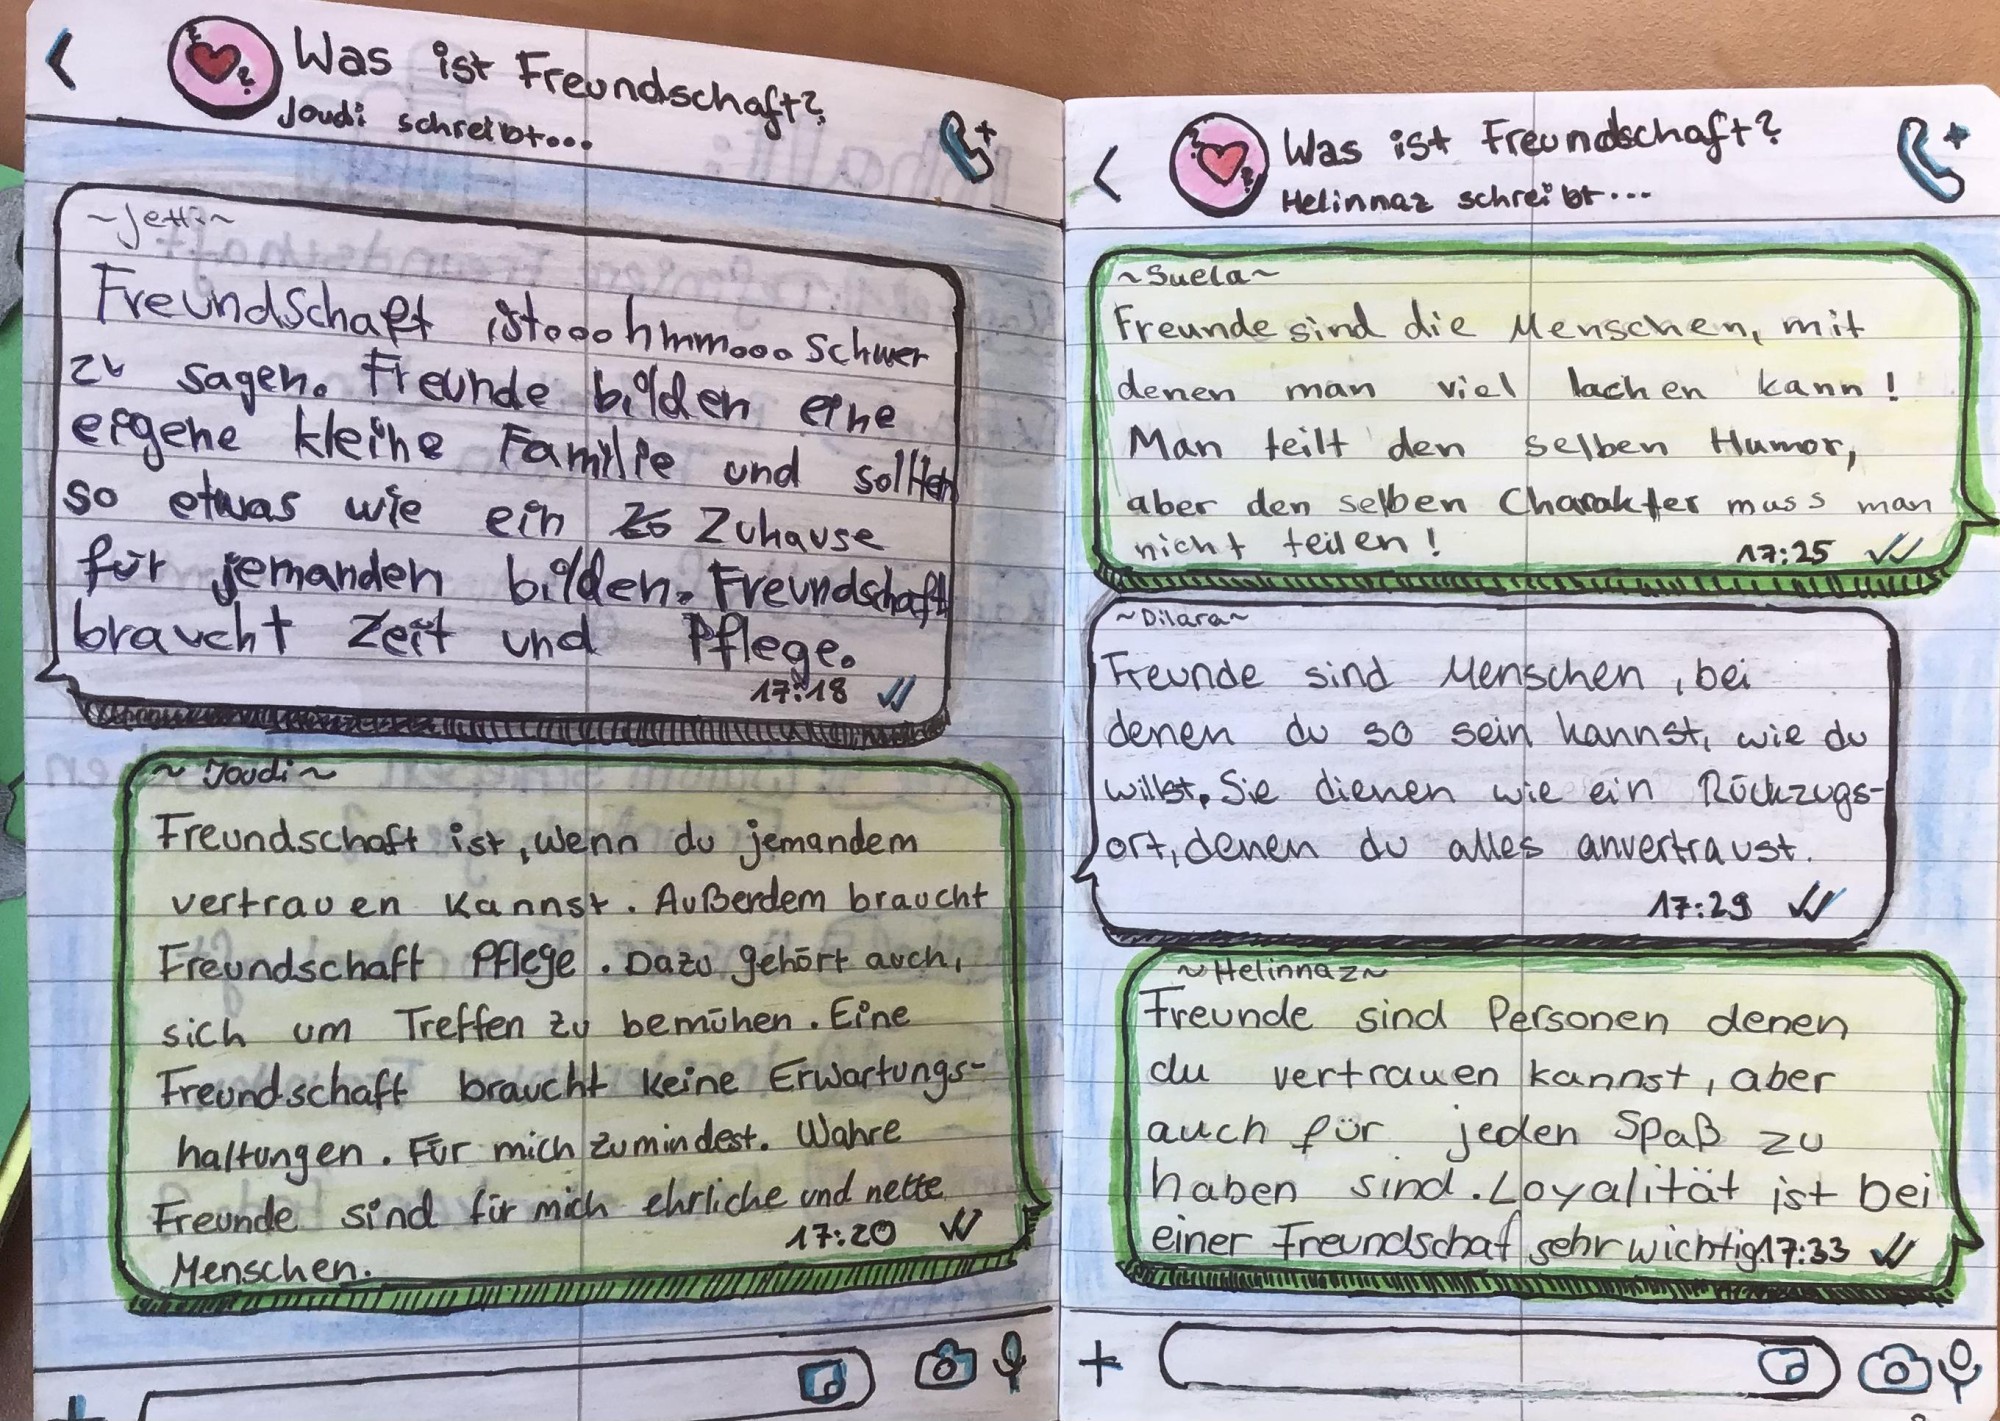 Was ist Freundschaft?
Joudi schreibt...
~Jetti~
Freundschaft ist...hmm... schwer
zu sagen. Freunde bilden eine
eigene kleine Familie und sollten
so etwas wie ein Zuhause
für jemanden bilden. Freundschaft
braucht Zeit und Pflege.
17:18
~Joudi~
Freundschaft ist, wenn du jemandem
vertrauen kannst. Außerdem braucht
Freundschaft Pflege. Dazu gehört auch,
sich um Treffen zu bemühen. Eine
Freundschaft braucht keine Erwartungs-
haltungen. Für mich zumindest. Wahre
Freunde sind für mich ehrliche und nette
Menschen.
17:20
Was ist Freundschaft?
Helinnaz schreibt...
~Suela~
Freunde sind die Menschen, mit
denen man viel lachen kann!
Man teilt den selben Humor,
aber den selben Charakter muss man
nicht teilen!
17:25
~Dilara~
Freunde sind Menschen, bei
denen du so sein kannst, wie du
willst. Sie dienen wie ein Rückzugs-
ort, denen du alles anvertraust.
17:29
~Helinnaz~
Freunde sind Personen denen
du vertrauen kannst, aber
auch für jeden Spaß zu
haben sind. Loyalität ist bei
einer Freundschaf sehr wichtig 17:33